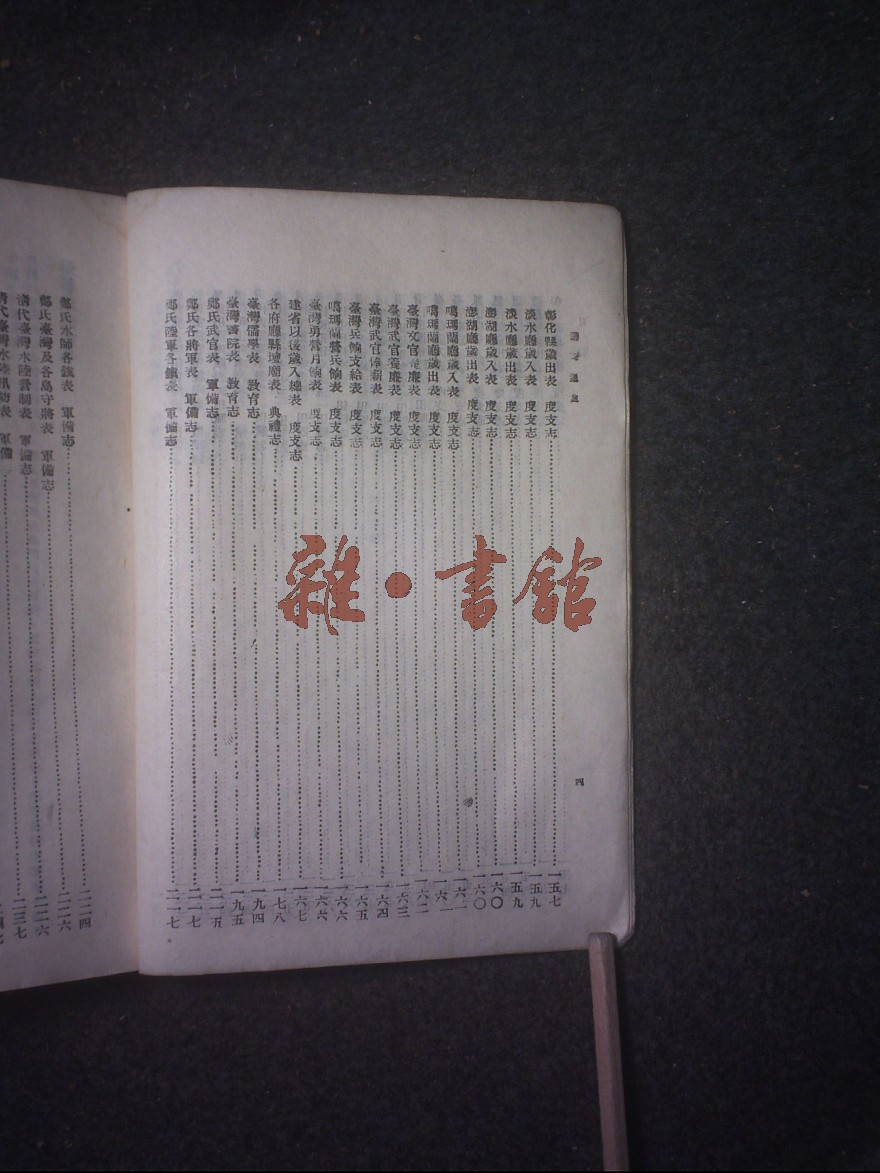 臺灣通史
四
彰化縣歲出表 度支志 一五七
淡水廳歲入表 度支志 一五九
淡水廳歲出表 度支志 一五九
澎湖廳歲入表 度支志 一六〇
澎湖廳歲出表 度支志 一六〇
噶瑪蘭廳歲入表 度支志 一六一
噶瑪蘭廳歲出表 度支志 一六一
臺灣文官養廉表 度支志 一六二
臺灣武官養廉表 度支志 一六三
臺灣武官俸薪表 度支志 一六四
臺灣兵餉支給表 度支志 一六五
噶瑪蘭營兵餉表 度支志 一六六
臺灣勇營月餉表 度支志 一六六
建省以後歲入總表 度支志 一六七
各府廳縣壇廟表 典禮志 一七八
臺灣儒學表 敎育志 一九四
臺灣書院表 敎育志 一九五
鄭氏武官表 軍備志 二一五
鄭氏各將軍表 軍備志 二一七
鄭氏陸軍各鎮表 軍備志 二一七
鄭氏水師各鎮表 軍備志 二二四
鄭氏臺灣及各島守將表 軍備志 二二六
清代臺灣水陸營制表 軍備志 二二六
清代臺灣水陸汛防表 軍備 二三七
雜·書館